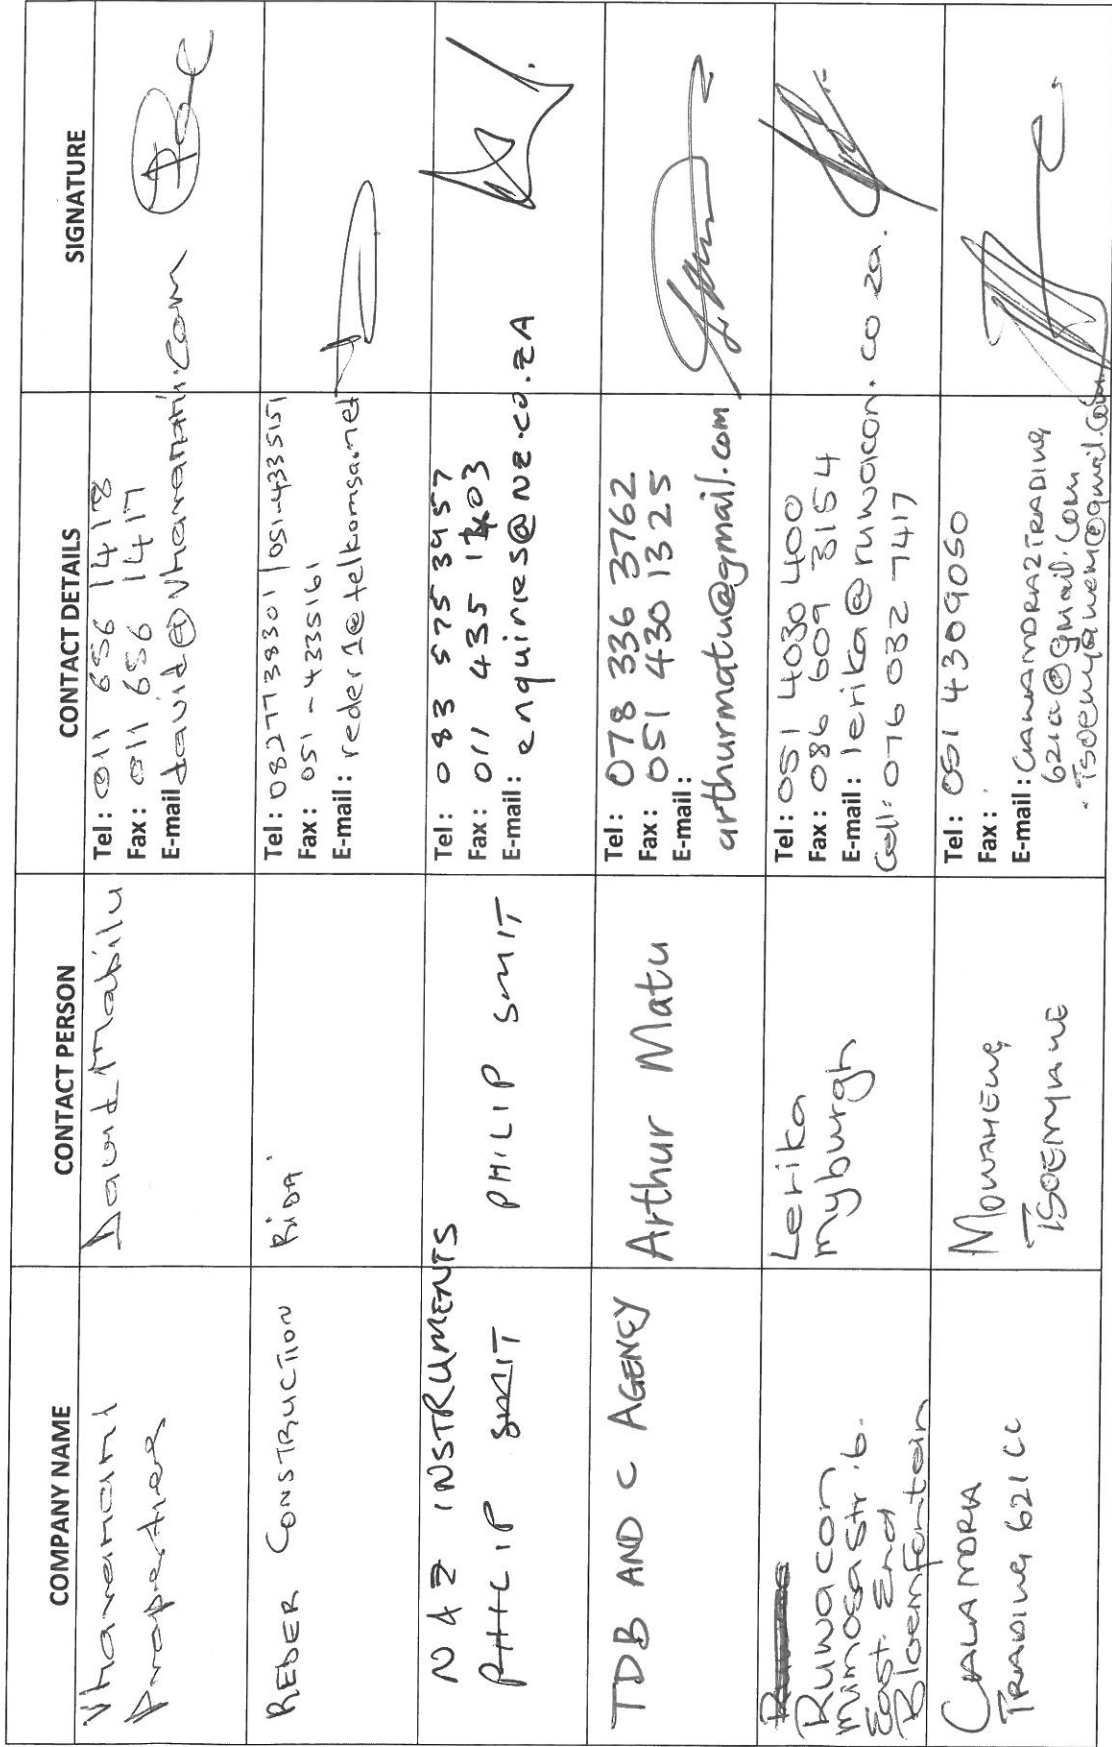 COMPANY NAME CONTACT PERSON CONTACT DETAILS SIGNATURE
Vhavenani
Properties
David Mabilu
Tel : 011 656 1418
Fax : 011 656 1417
E-mail david@vhavenani.com
REDER CONSTRUCTION
RiDA
Tel : 0827773830 1 / 051-4335151
Fax : 051 - 4335161
E-mail : reder1@telkomsa.net
N A Z INSTRUMENTS
PHILIP SMIT
PHILIP SMIT
Tel : 083 575 3957
Fax : 011 435 1403
E-mail : enquiries@NZ.co.ZA
TDB AND C AGENCY
Arthur Matu
Tel : 078 336 3762
Fax : 051 430 1325
E-mail :
arthurmatu@gmail.com
Ruwacon
mimosa Str. 6.
East End
Bloemfontein
Lerika
myburgh
Tel : 051 4030 400
Fax : 086 609 3154
E-mail : lerika@ruwacon.co.za.
Cell: 076 032 7417
TRADING 621 CC
TSOENYANE
Tel : 051 4309050
Fax :
E-mail :
621a@gmail.com